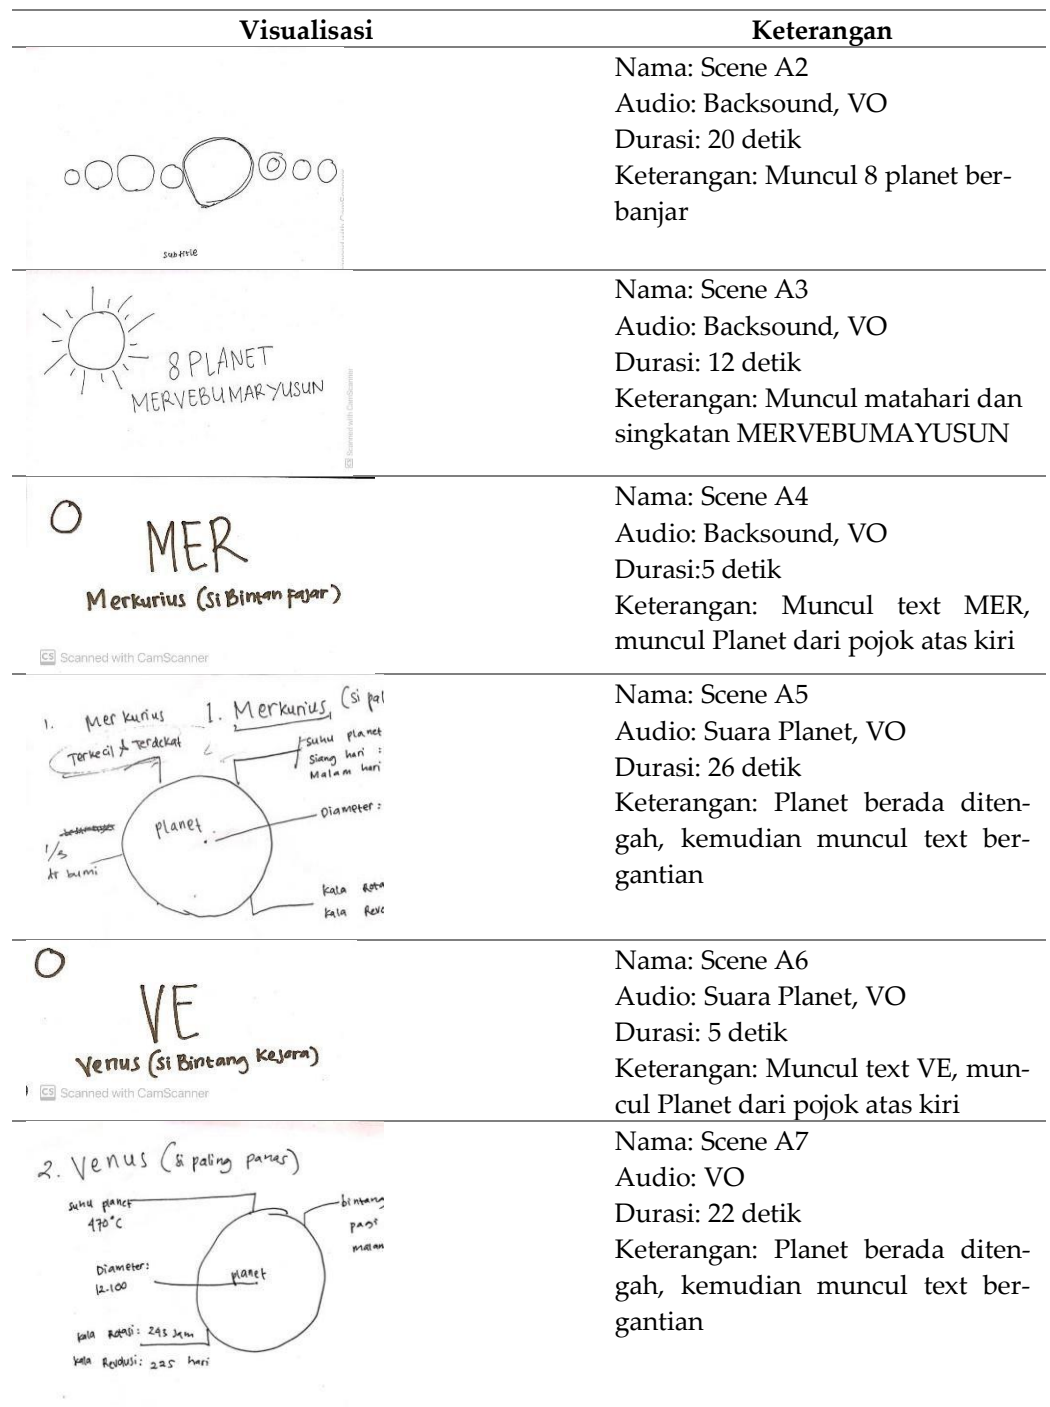 Visualisasi
Keterangan
subtitle
Nama: Scene A2
Audio: Backsound, VO
Durasi: 20 detik
Keterangan: Muncul 8 planet ber-
banjar
8 PLANET
MERVEBUMARYUSUN
Scanned with CamScanner
Nama: Scene A3
Audio: Backsound, VO
Durasi: 12 detik
Keterangan: Muncul matahari dan
singkatan MERVEBUMAYUSUN
MER
Merkurius (si Bintan Fajar)
CS Scanned with CamScanner
Nama: Scene A4
Audio: Backsound, VO
Durasi:5 detik
Keterangan: Muncul text MER,
muncul Planet dari pojok atas kiri
1. Merkurius
1. Merkurius, (si pal
Terkecil & Terdekat
suhu planet
siang hari :
Malam hari
Diameter:
planet
1/3
dr bumi
kala Rota
kala Revo
Nama: Scene A5
Audio: Suara Planet, VO
Durasi: 26 detik
Keterangan: Planet berada diten-
gah, kemudian muncul text ber-
gantian
VE
Venus (si Bintang Kejora)
CS Scanned with CamScanner
Nama: Scene A6
Audio: Suara Planet, VO
Durasi: 5 detik
Keterangan: Muncul text VE, mun-
cul Planet dari pojok atas kiri
2. Venus (si paling panas)
suhu planet
470°C
bintang
pagi
malam
Diameter:
12.100
planet
kala Rotasi: 243 Jam
kala Revolusi: 225 hari
Nama: Scene A7
Audio: VO
Durasi: 22 detik
Keterangan: Planet berada diten-
gah, kemudian muncul text ber-
gantian